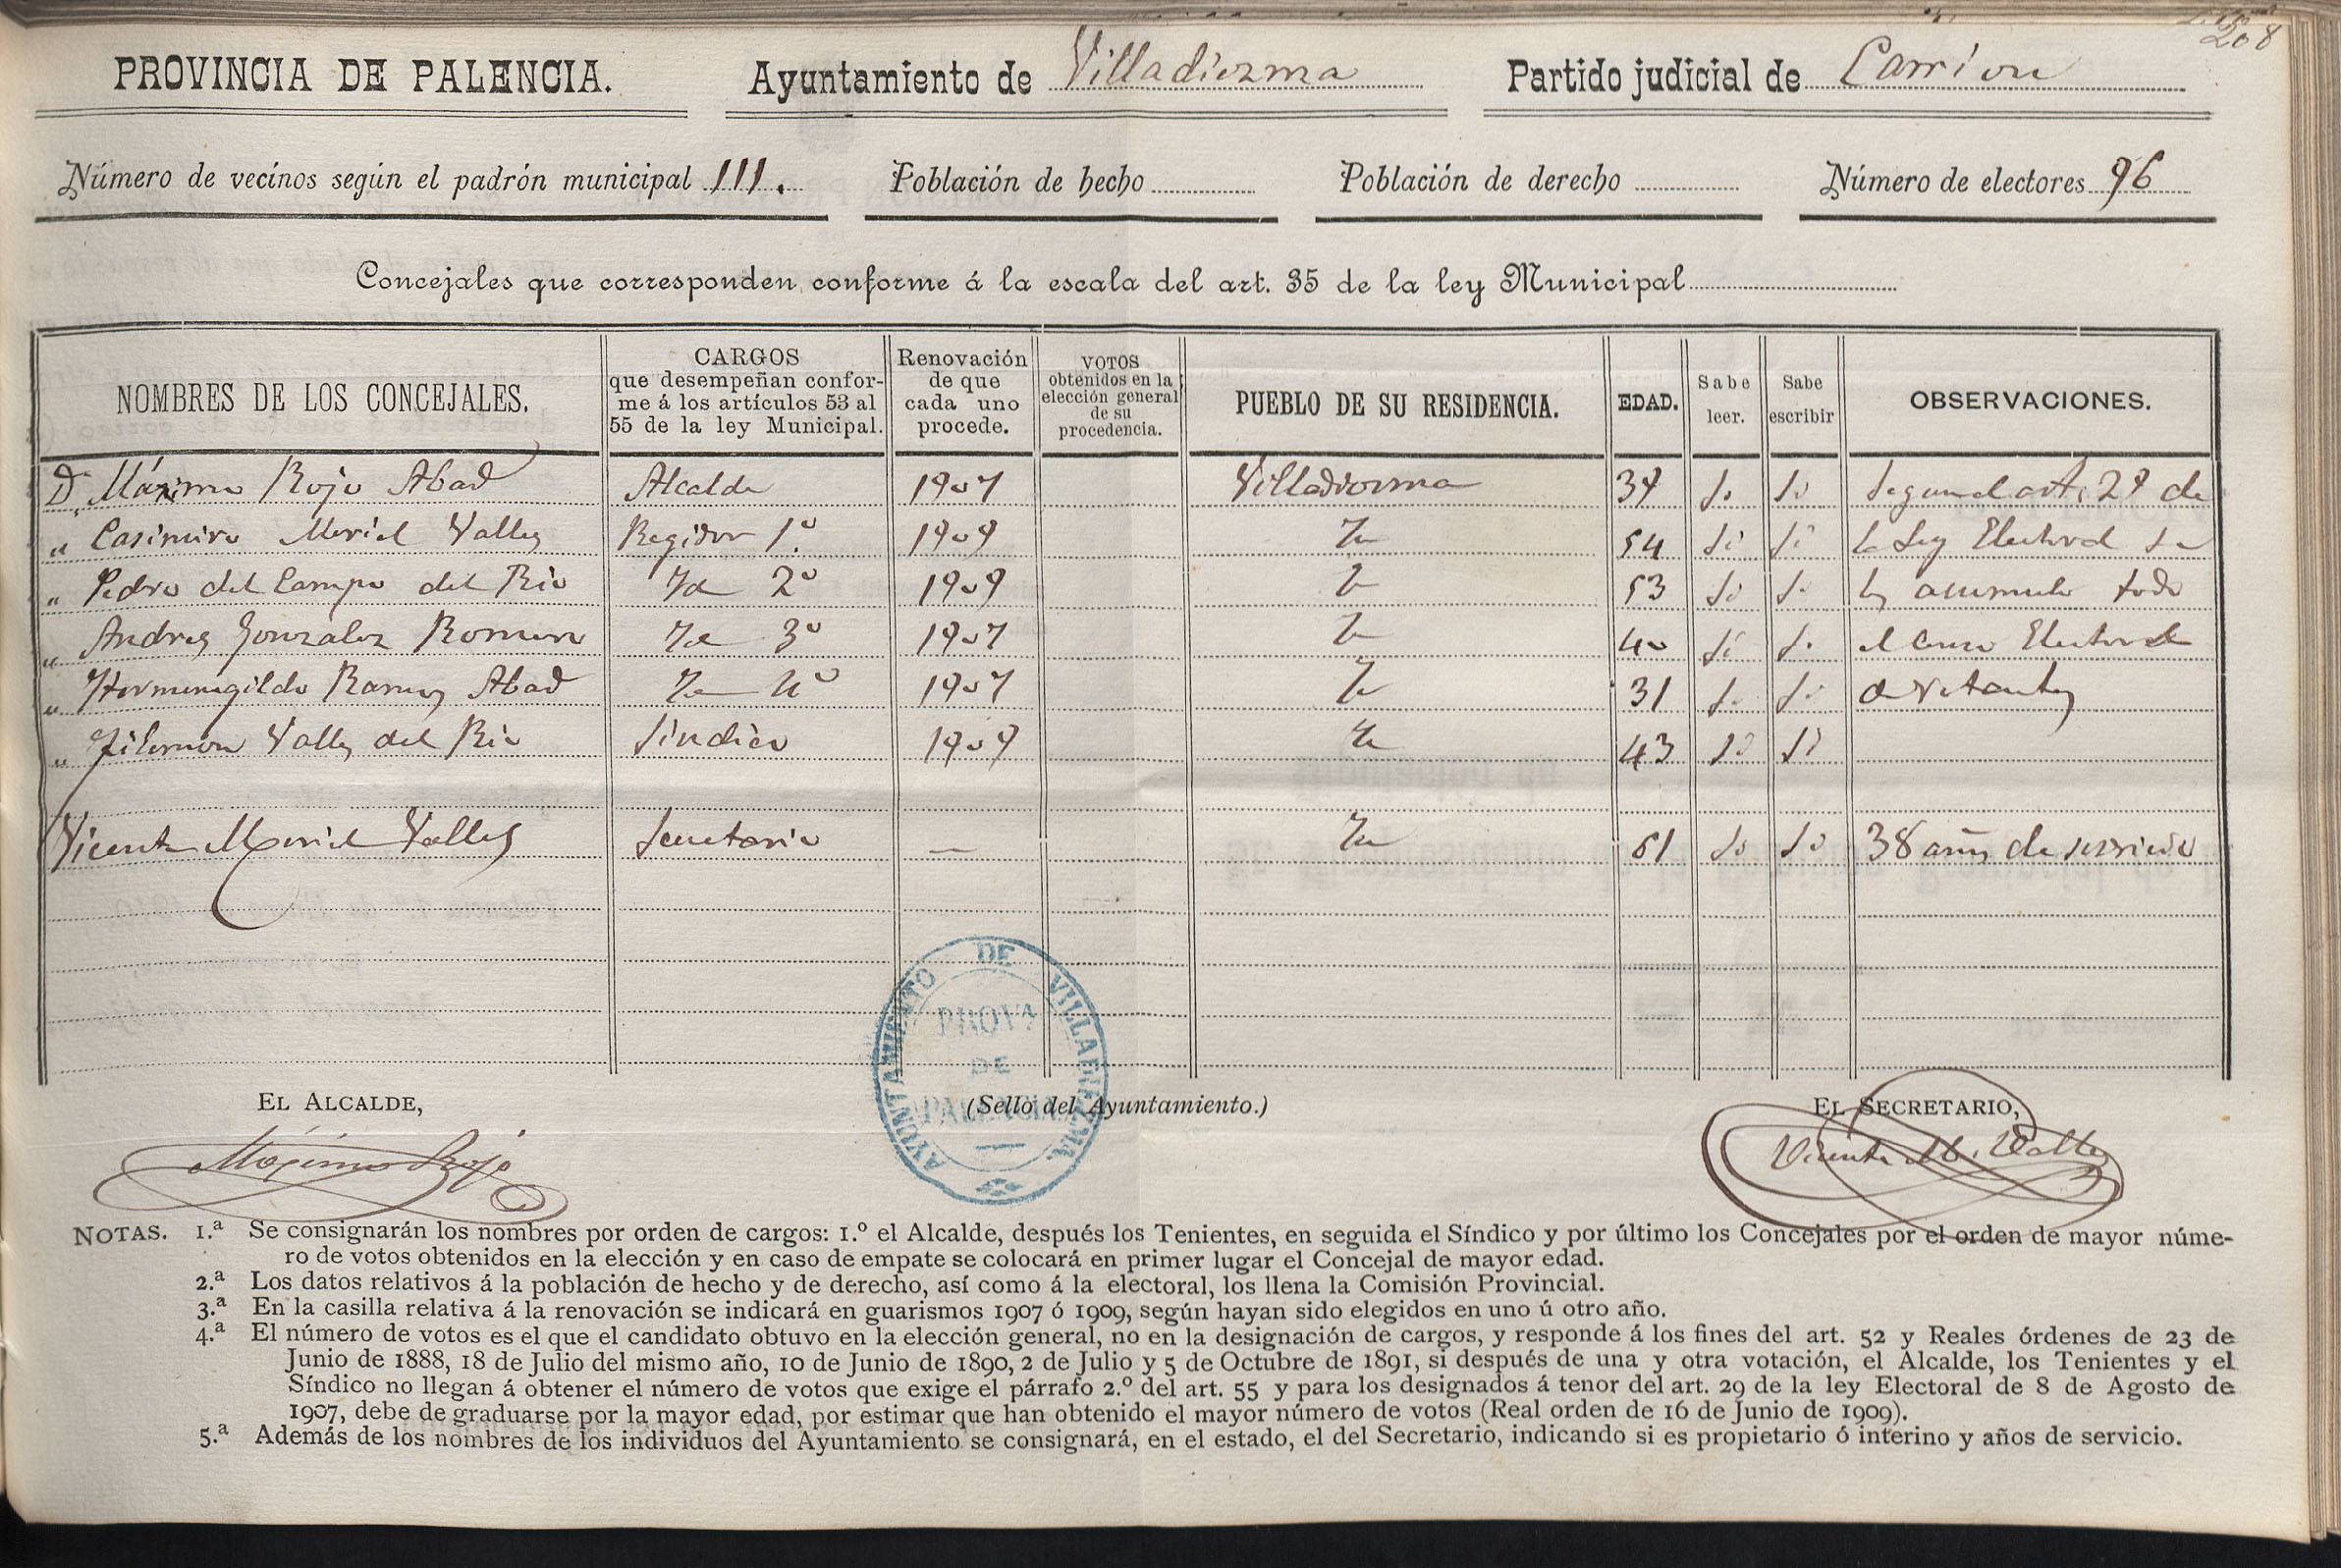 208
PROVINCIA DE PALENCIA. Ayuntamiento de Villadiezma Partido judicial de Carrion
Número de vecinos según el padrón municipal 111. Población de hecho Población de derecho Número de electores 96
Concejales que corresponden conforme á la escala del art. 35 de la ley Municipal
NOMBRES DE LOS CONCEJALES. CARGOS que desempeñan confor- me á los artículos 53 al 55 de la ley Municipal. Renovación de que cada uno procede. VOTOS obtenidos en la elección general de su procedencia. PUEBLO DE SU RESIDENCIA. EDAD. Sabe leer. Sabe escribir OBSERVACIONES.
D. Máximo Rojo Abad Alcalde 1907 Villadiezma 37 Si Si Segun el art. 29 de
" Casimiro Meriel Valles Regidor 1.º 1909 Id 54 Si Si la Ley Electoral se
" Pedro del Campo del Rio Id 2º 1909 Id 53 Si Si les acumulo todo
" Andres Gonzalez Roman Id 3º 1907 Id 40 Si Si el Censo Electoral
" Hermenegildo Ramos Abad Id 4º 1907 Id 31 Si Si de Votantes
" Filemon Valles del Rio Sindico 1909 Id 43 Si Si
Vicente Meriel Valles Secretario — Id 61 Si Si 38 años de servicio
AYUNTAMIENTO DE VILLADIEZMA
PROVA
DE
PALENCIA
EL ALCALDE, (Sello del Ayuntamiento.) EL SECRETARIO,
Máximo Rojo Vicente M. Valles
NOTAS. 1.ª Se consignarán los nombres por orden de cargos: 1.º el Alcalde, después los Tenientes, en seguida el Síndico y por último los Concejales por el orden de mayor núme-
ro de votos obtenidos en la elección y en caso de empate se colocará en primer lugar el Concejal de mayor edad.
2.ª Los datos relativos á la población de hecho y de derecho, así como á la electoral, los llena la Comisión Provincial.
3.ª En la casilla relativa á la renovación se indicará en guarismos 1907 ó 1909, según hayan sido elegidos en uno ú otro año.
4.ª El número de votos es el que el candidato obtuvo en la elección general, no en la designación de cargos, y responde á los fines del art. 52 y Reales órdenes de 23 de
Junio de 1888, 18 de Julio del mismo año, 10 de Junio de 1890, 2 de Julio y 5 de Octubre de 1891, si después de una y otra votación, el Alcalde, los Tenientes y el
Síndico no llegan á obtener el número de votos que exige el párrafo 2.º del art. 55 y para los designados á tenor del art. 29 de la ley Electoral de 8 de Agosto de
1907, debe de graduarse por la mayor edad, por estimar que han obtenido el mayor número de votos (Real orden de 16 de Junio de 1909).
5.ª Además de los nombres de los individuos del Ayuntamiento se consignará, en el estado, el del Secretario, indicando si es propietario ó interino y años de servicio.